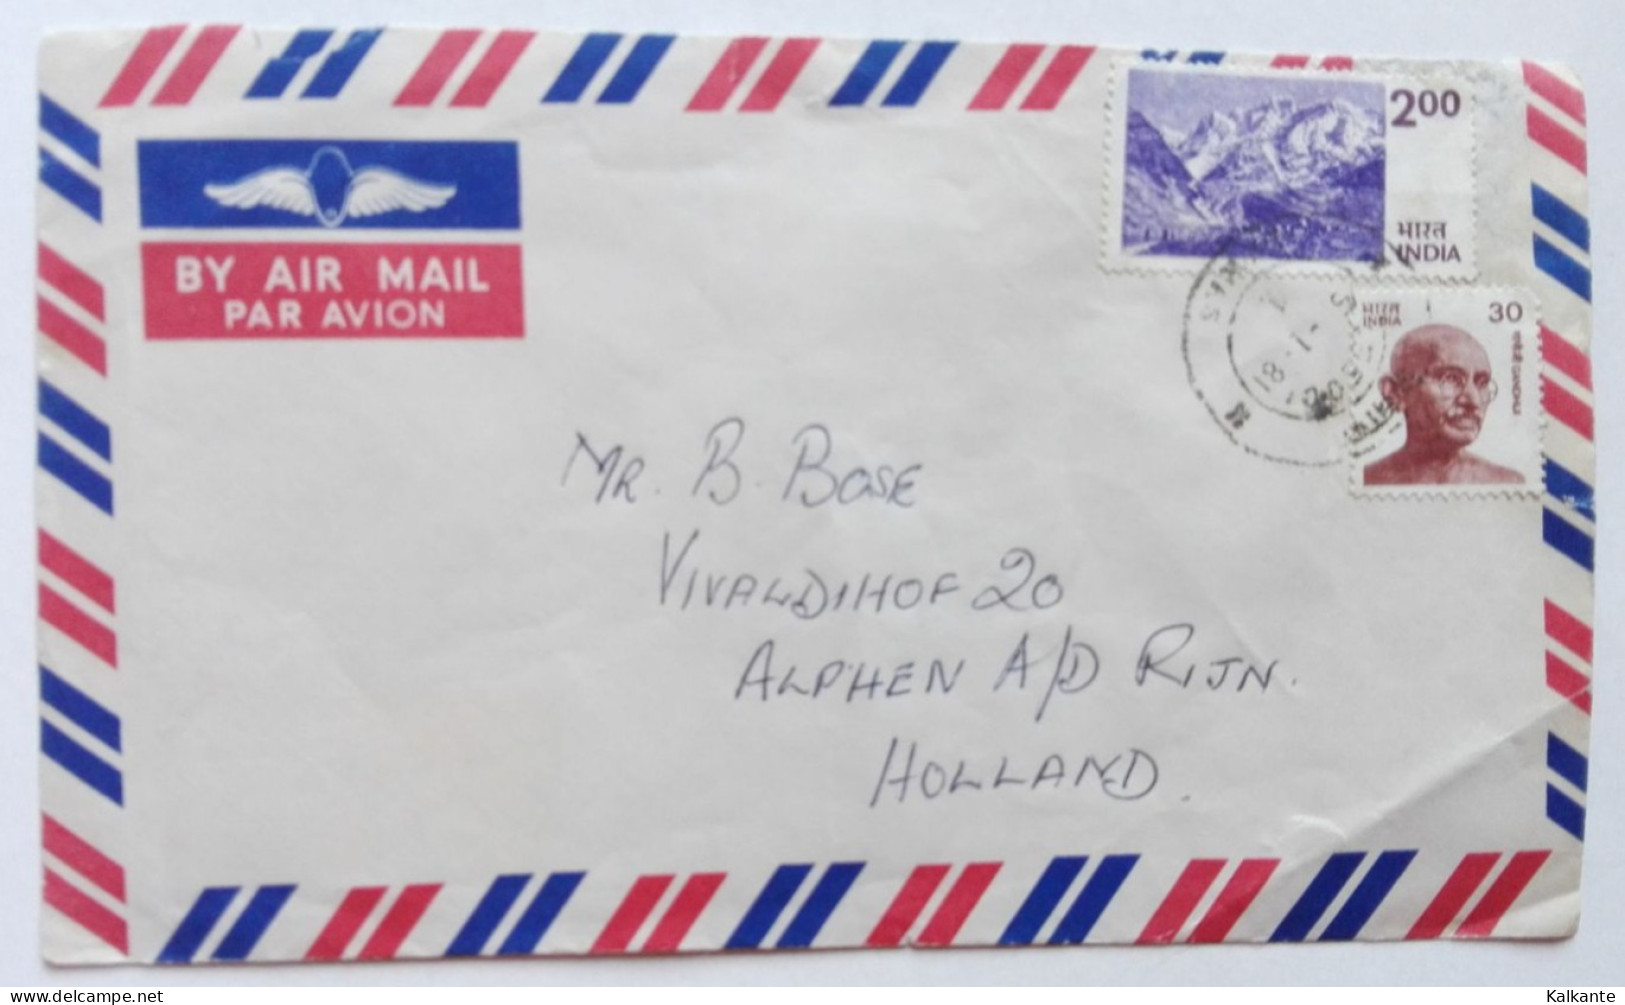 BY AIR MAIL
PAR AVION
2.00
भारत
INDIA
भारत
INDIA
30
गांधी GANDHI
MR. B. BOSE
VIVALDIHOF 20
ALPHEN A/D RIJN.
HOLLAND.
Kalkante